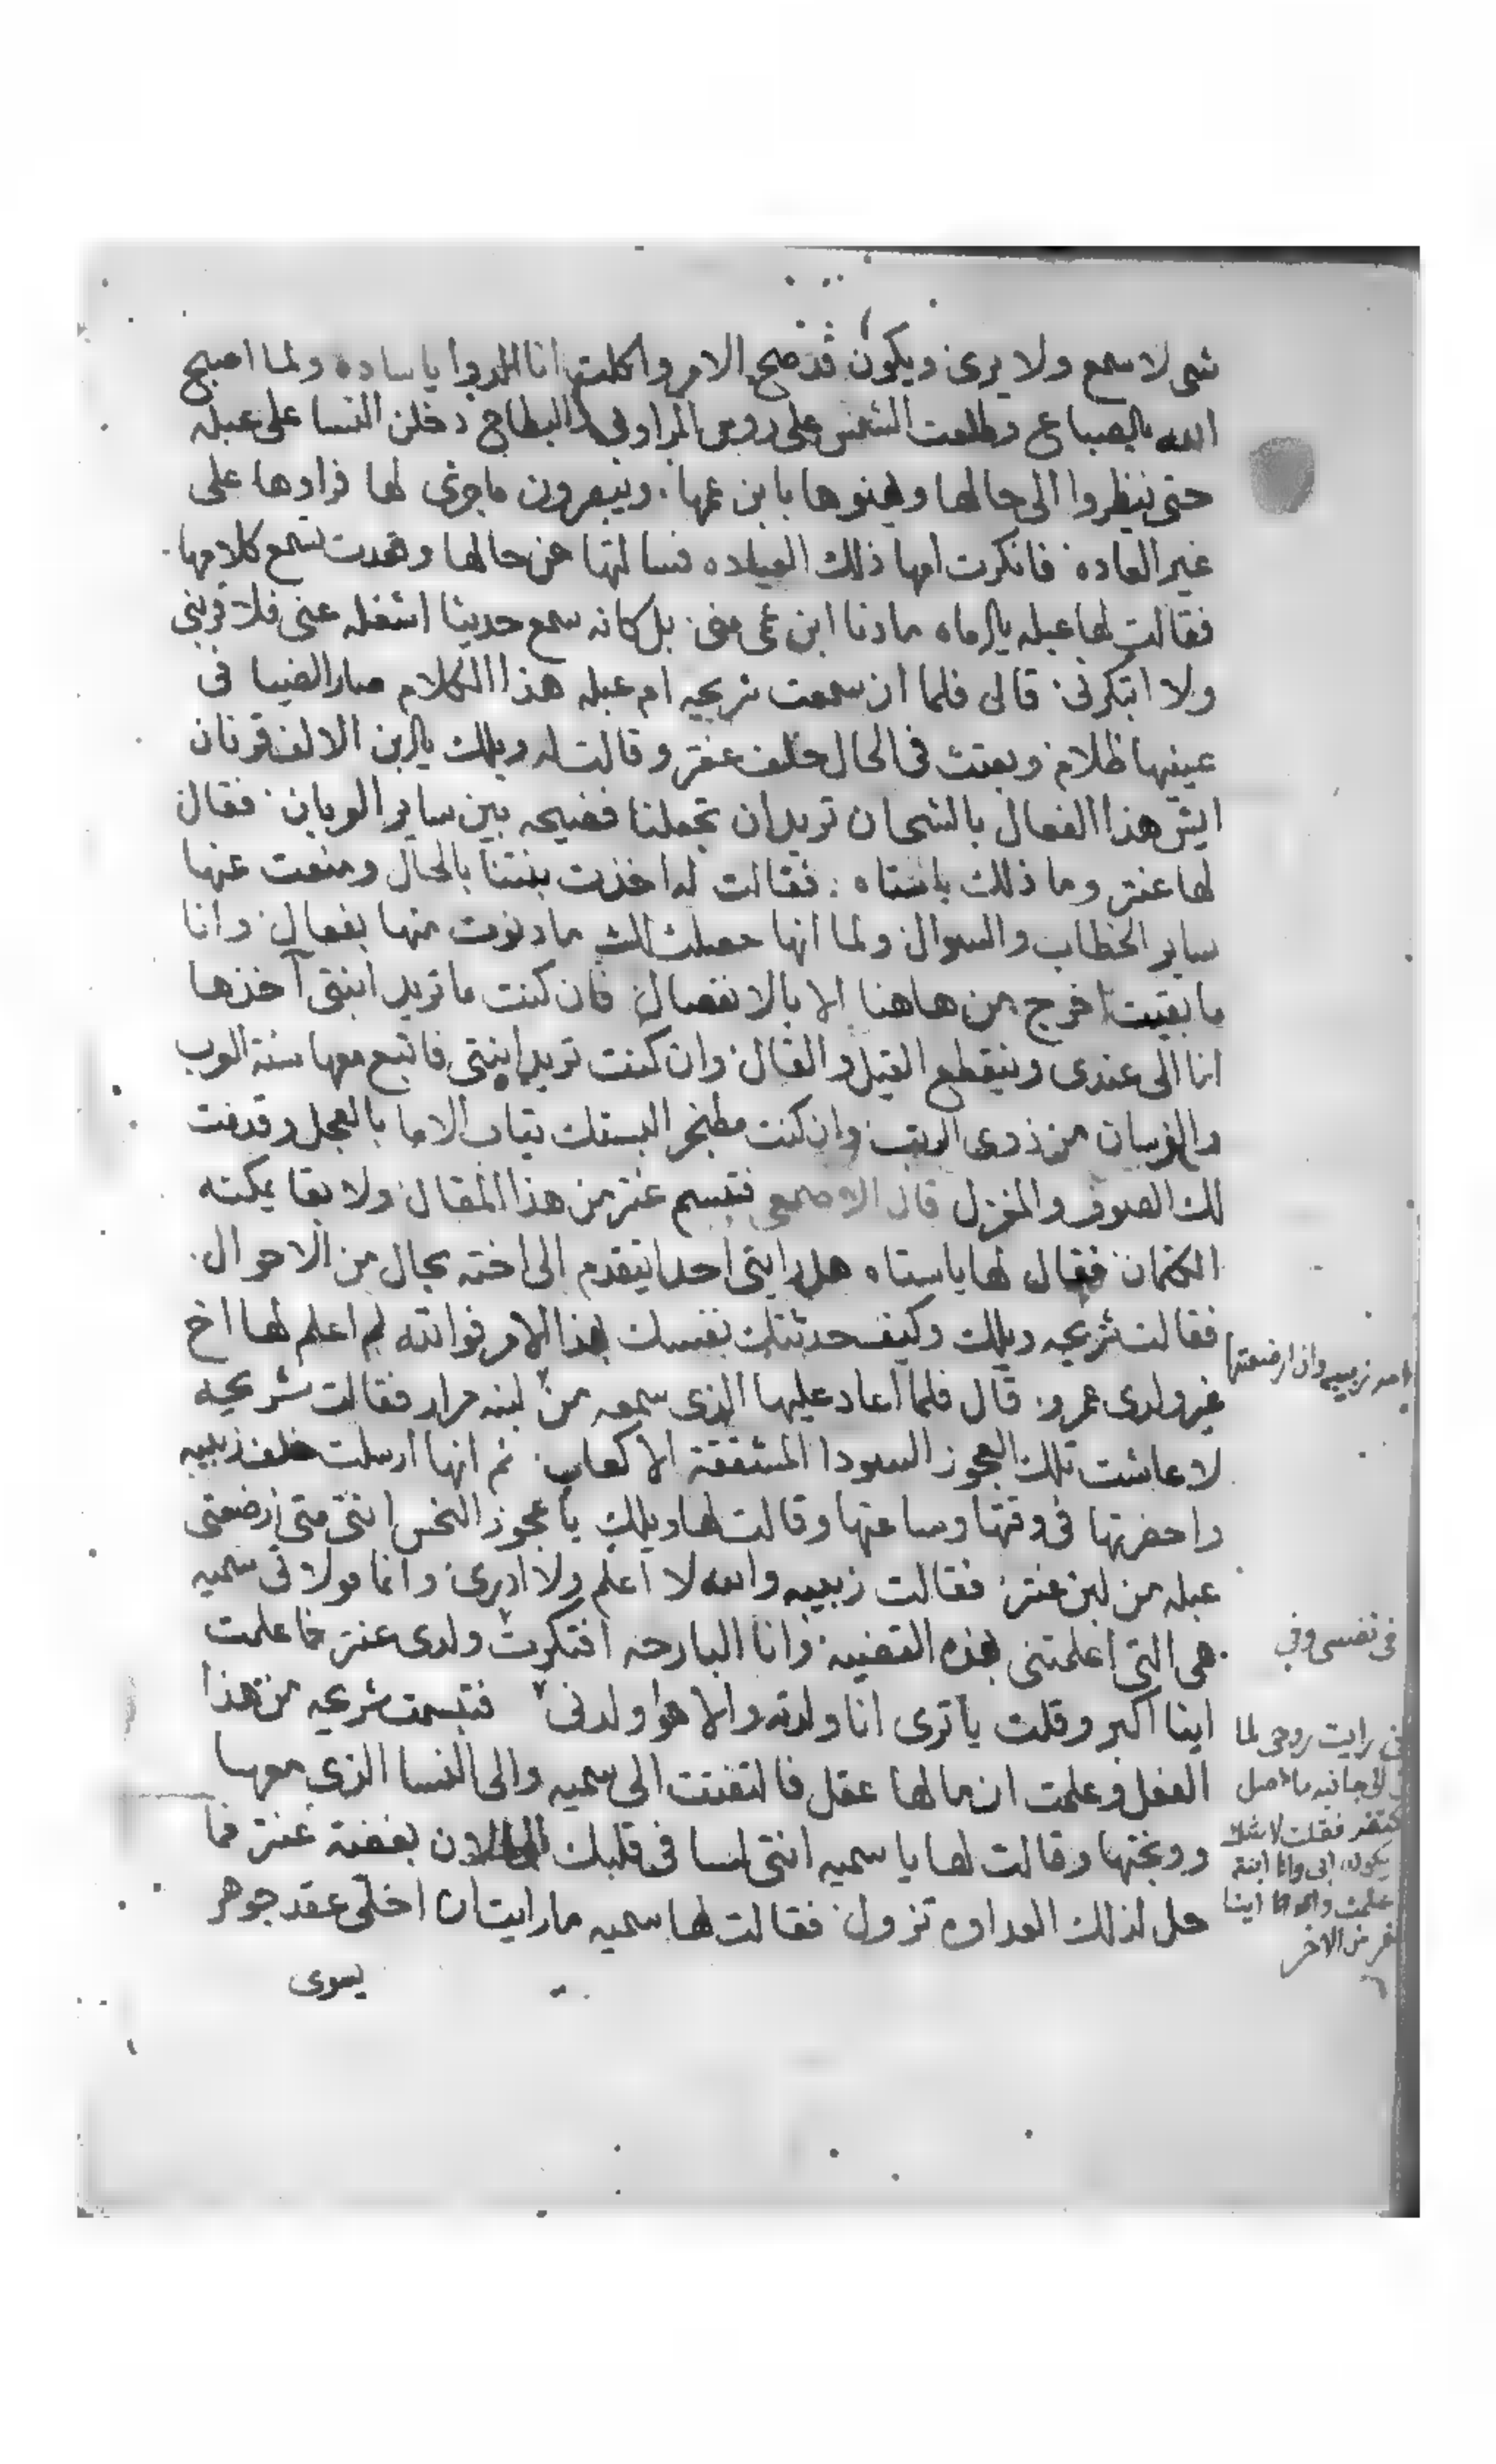 شى لا سمع ولا يرى ويكون قد صح الامر واكلت انا المروا يا ساده ولما اصبح
الله بالصباح وطلعت الشمس على روس الروابى والبطاح دخلن النسا على عبله
حتى ينظروا الى حالها ويهنوها بابن عمها ويبصرون ما جرى لها فراوها على
غير العاده فانكرت امها ذلك العياده فسالتها عن حالها وقعدت تسمع كلامها
فقالت لها عبله يا اماه ما دنا ابن عمى منى بل كانه سمع حديثا اشغله عنى فلا قربنى
ولا ابتكرنى قال فلما ان سمعت شريحه ام عبله هذا الكلام صار الضيا فى
عينيها ظلام وبعتت فى الحال خلف عنتر وقالت له ويلك يا ابن الالف قرنان
ايش هذا الفعال يا شحان تريد ان تجعلنا فضيحه بين ساير العربان فقال
لها عنتر وما ذلك يا ستاه فقالت له اخذت بنتنا بالحال ومنعت عنها
ساير الخطاب والسوال ولما انها حصلت لك ما دنوت منها بفعال وانا
ما بقيت اخرج من هاهنا الا بالانفصال فان كنت ما تريد ابنتى آخذها
انا الى عندى وينقطع القيل والقال وان كنت تريد ابنتى فاتبع معها سنة العرب
والفرسان من ذوى الرتب وان كنت مطنجر البستك تياب الاما بالعجل وقدمت
لك الصوف والمغزل قال الاصمعى فتبسم عنتر من هذا المقال ولا بقا يمكنه
الكتمان فقال لها يا ستاه هل رايتى احدا يتقدم الى اخته بحال من الاحوال
فقالت شريحه ويلك وكيف حدثتك نفسك بهذا الامر فوالله لم اعلم لها اخ
غير ولدى عمرو قال فلما اعاد عليها الذى سمعه من لبنه مرار فقالت شريحه
لا عاشت تلك العجوز السودا المشققة الاكعاب ثم انها ارسلت خلف زبيبه
واحضرتها فى وقتها وساعتها وقالت لها ويلك يا عجوز النحس انتى متى ارضعتى
عبله من لبن عنتر فقالت زبيبه والله لا اعلم ولا ادرى وانما مولاتى سميه
هى التى اعلمتنى بهذه القضيه وانا البارحه افتكرت ولدى عنتر فما علمت
اينا اكبر وقلت يا ترى انا ولدته والا هوا ولدنى فتبسمت شريحه من هذا
العفل وعلمت ان ما لها عقل فالتفتت الى سميه والى النسا الذى معها
ووبختها وقالت لها يا سميه انتى لسا فى قلبك الى الان بغضة عنتر فما
حل لذلك العداوه تزول فقالت لها سميه ما رايت ان اختى عقد جوهر
يسوى
زبيبه وان ارضعتها
فى نفسى وفى
رايت روحى لما
فقلت لا شك
يكون ابى وانا ابنة
علمت والا انا اينا
من الاخر